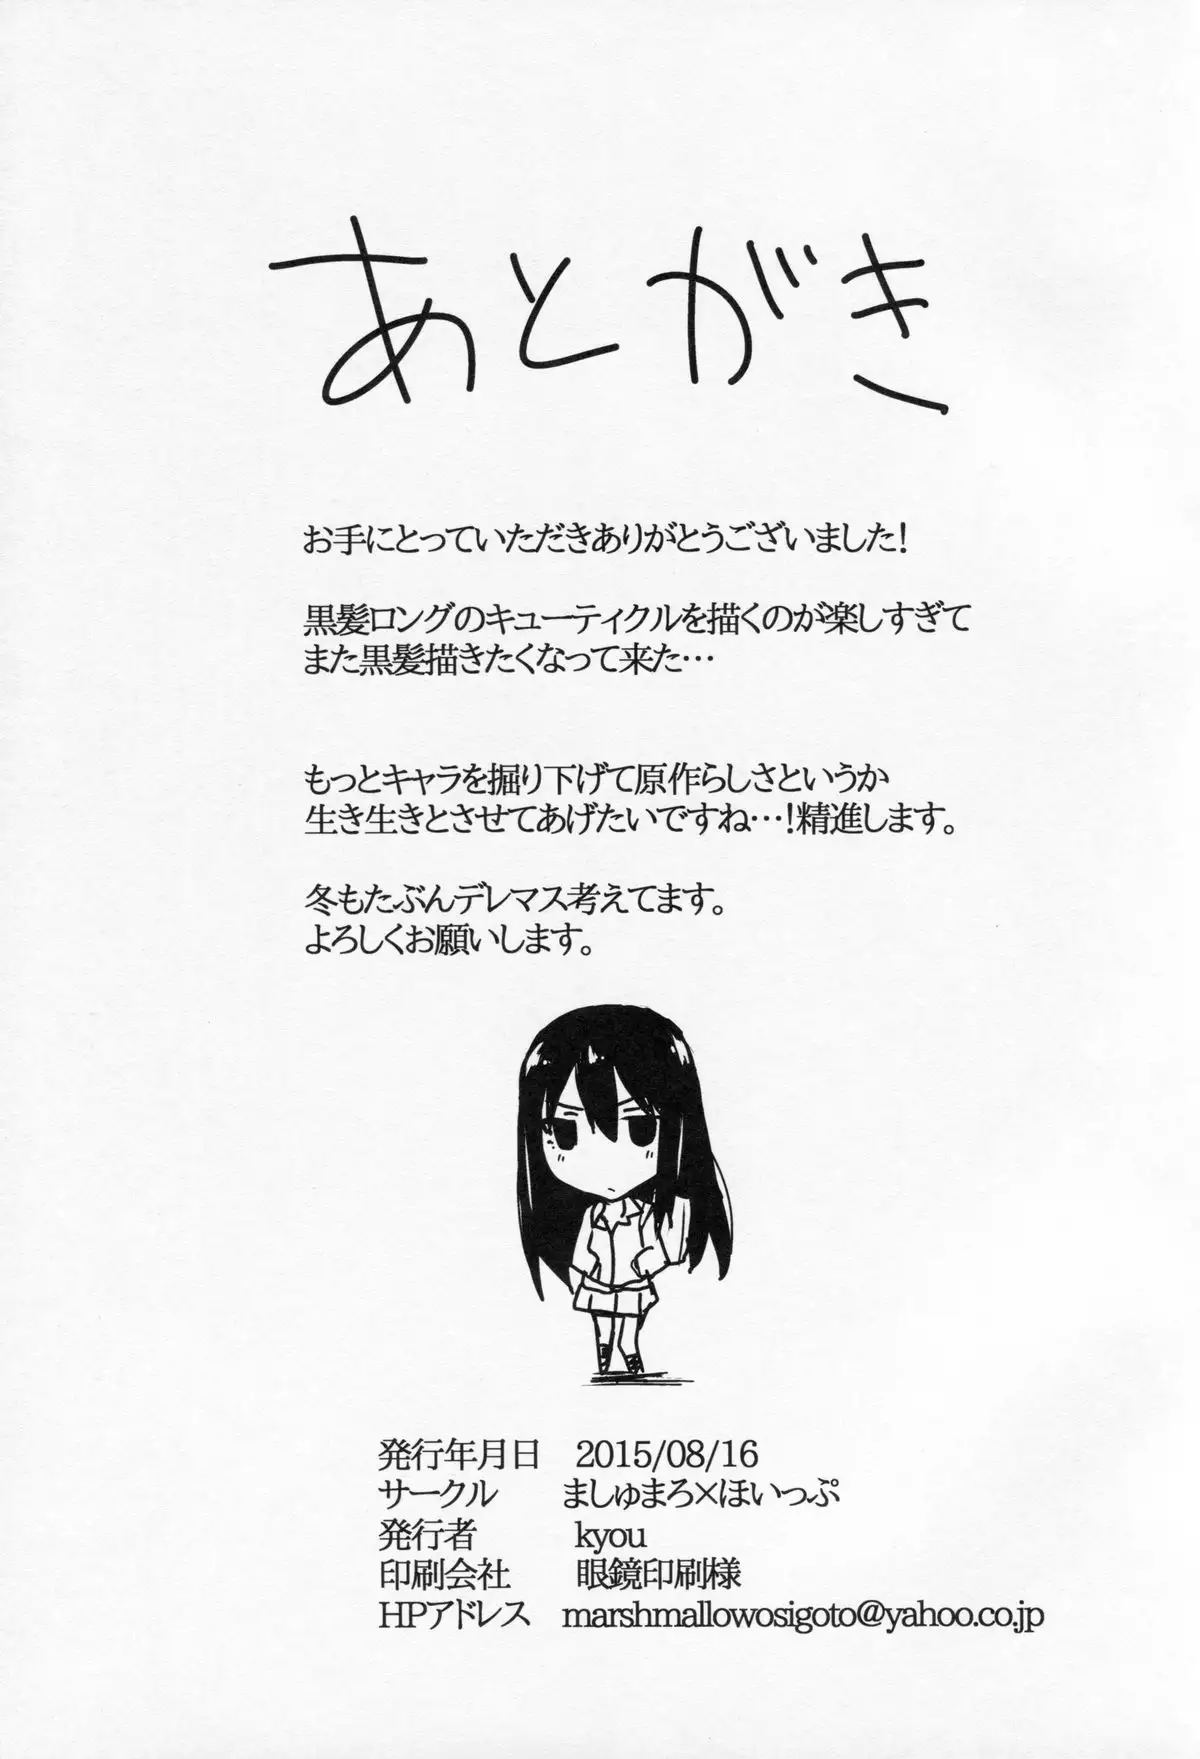 あとがき
お手にとっていただきありがとうございました!
黒髪ロングのキューティクルを描くのが楽しすぎて
また黒髪描きたくなって来た…
もっとキャラを掘り下げて原作らしさというか
生き生きとさせてあげたいですね…!精進します。
冬もたぶんデレマス考えてます。
よろしくお願いします。
発行年月日 2015/08/16
サークル ましゅまろ×ほいっぷ
発行者 kyou
印刷会社 眼鏡印刷様
HPアドレス marshmallowosigoto@yahoo.co.jp